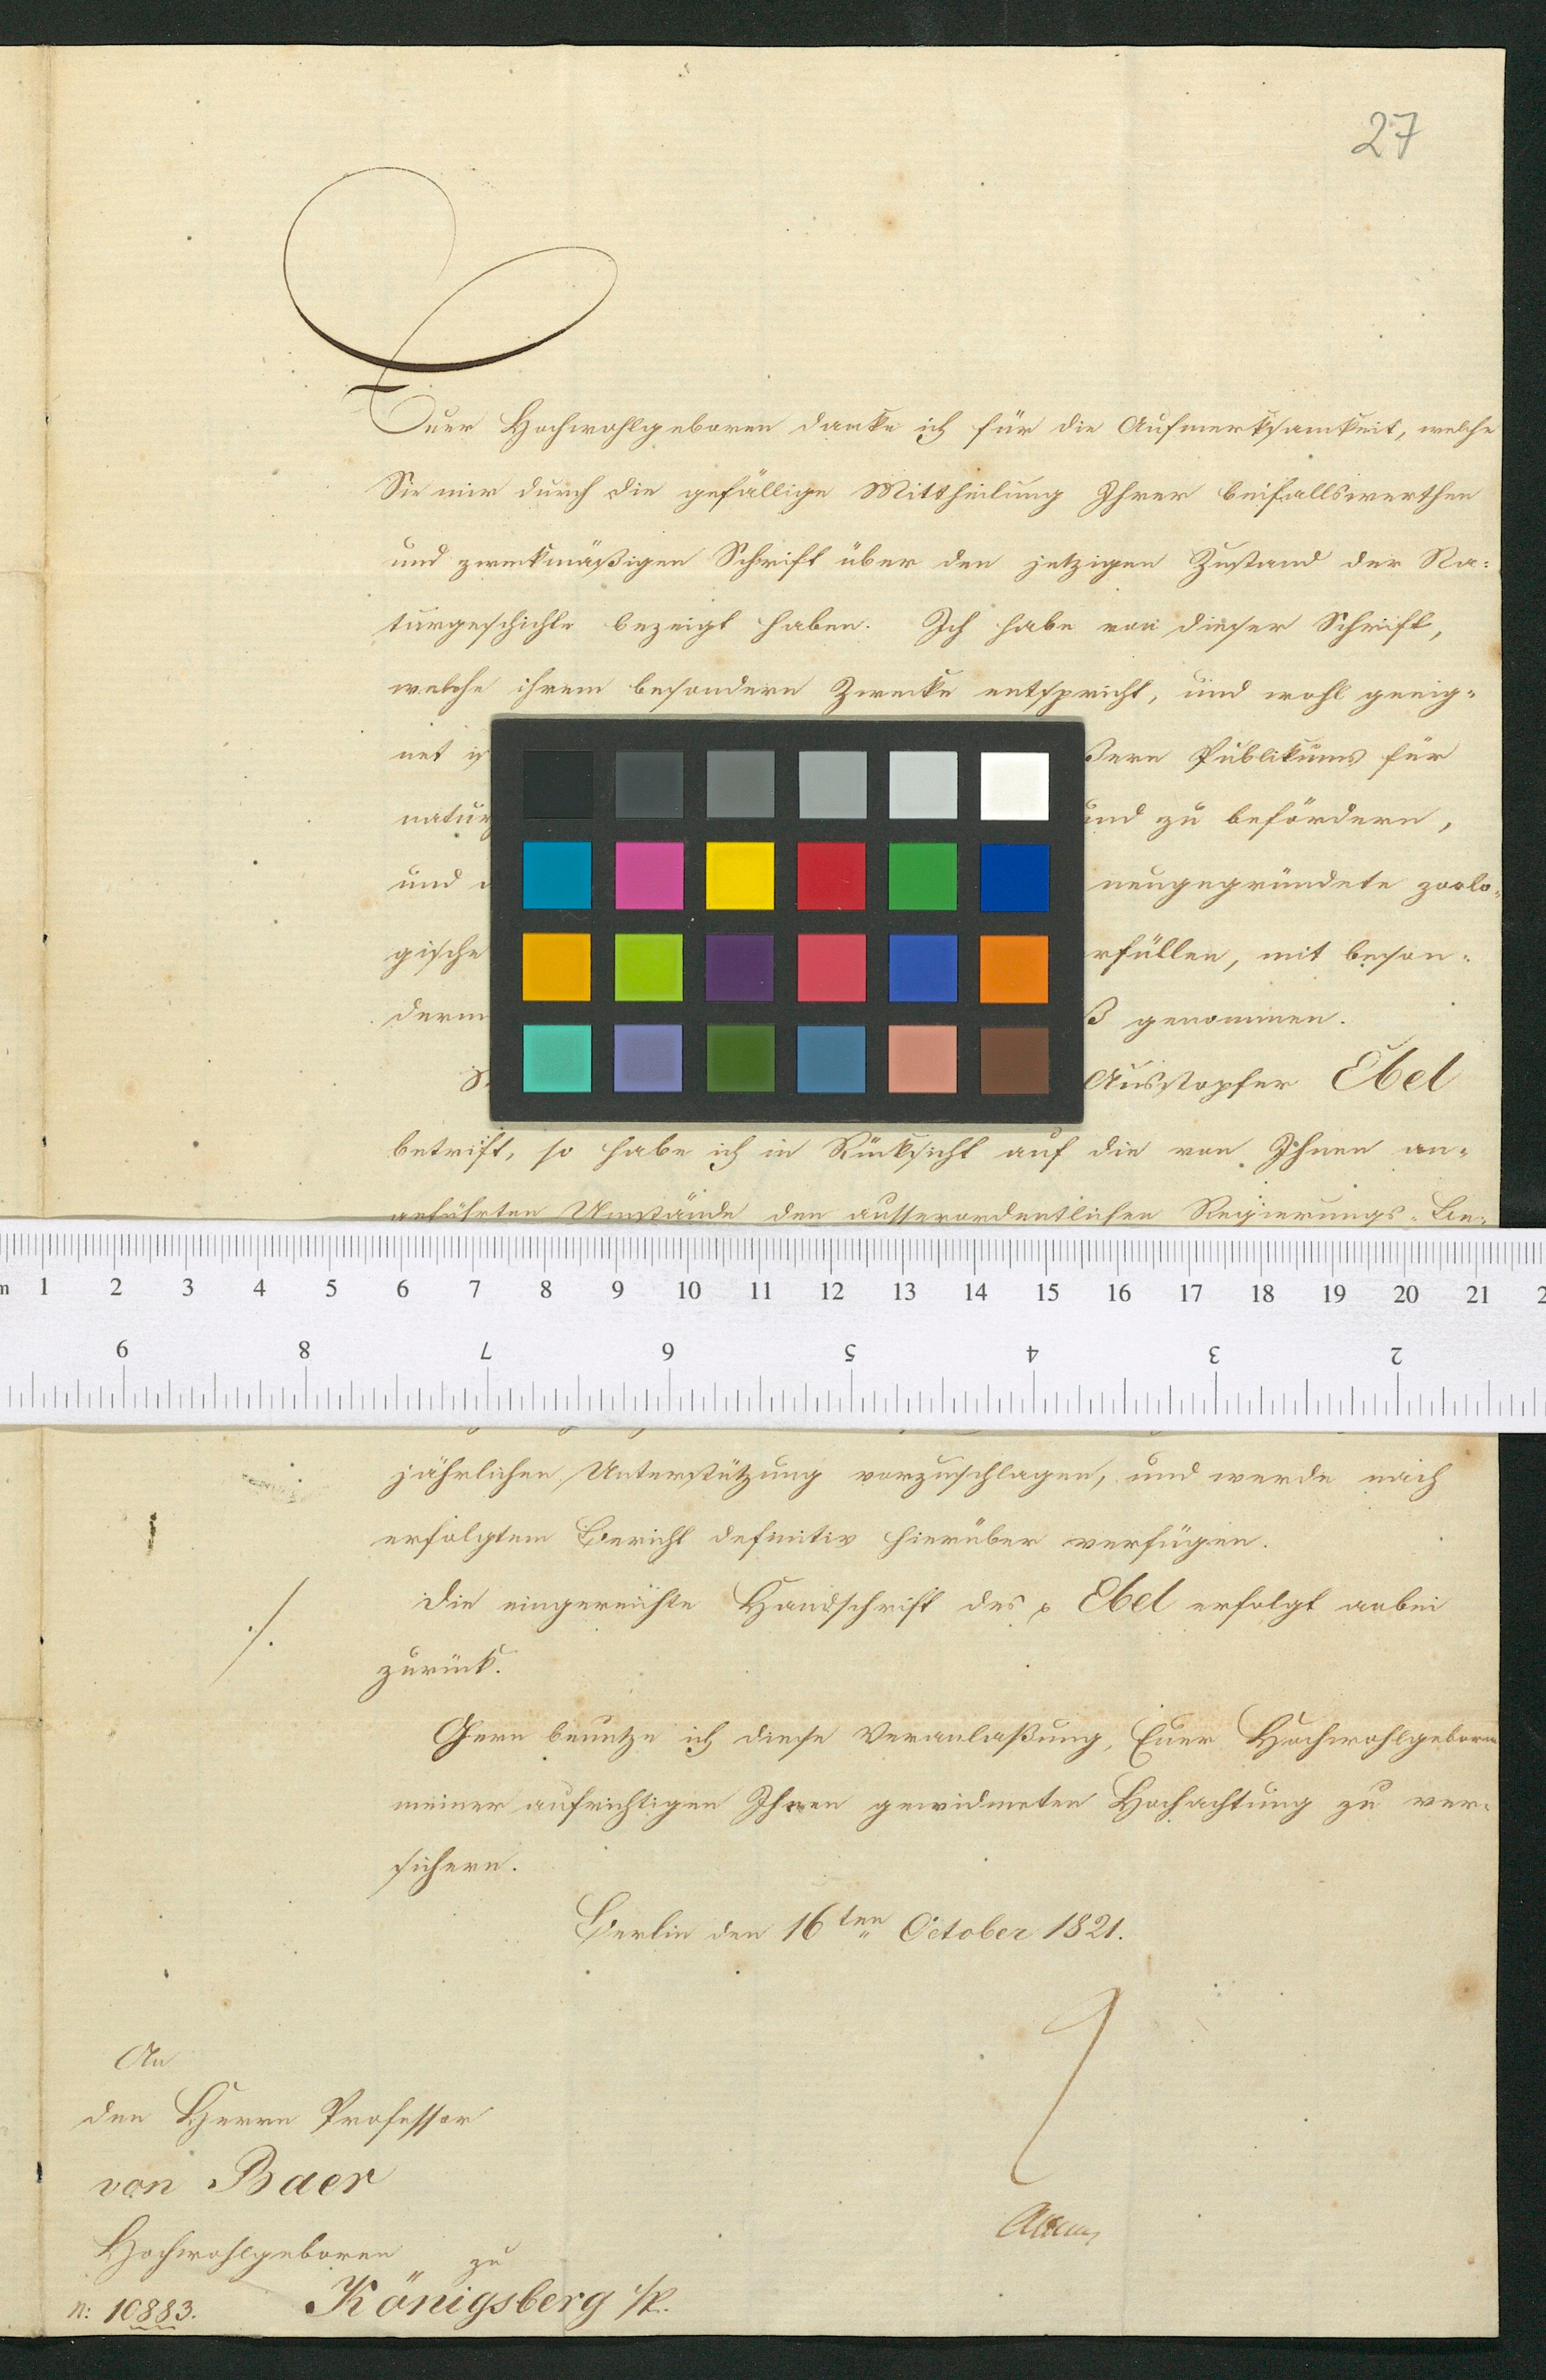 27
Euer Hochwohlgeboren danke ich für die Aufmerksamkeit, welche
Sie mir durch die gefällige Mittheilung Ihrer beifallswerthen
und zweckmäßigen Schrift über den jetzigen Zustand der Na-
turgeschichte bezeigt haben. Ich habe von dieser Schrift,
welche ihrem besondern Zwecke entspricht, und wohl geeig-
net is ßern Publikums für
natur und zu befördern,
und neugegründete zoolo-
gische rfüllen, mit beson-
derm ß genommen.
Ausstopfer Ebel
betrift, so habe ich in Rücksicht auf die von Ihnen an-
geführten Umstände den ausserordentlichen Regierungs-Be-
m 1 2 3 4 5 6 7 8 9 10 11 12 13 14 15 16 17 18 19 20 21 2
9 8 7 6 5 4 3 2
jährlichen Unterstützung vorzuschlagen, und werde nach
erfolgtem Bericht definitiv hierüber verfügen.
./. Die eingereichte Handschrift des p Ebel erfolgt anbei
zurück.
Gern benutze ich diese Veranlaßung, Euer Hochwohlgeboren
meiner aufrichtigen Ihnen gewidmeten Hochachtung zu ver-
sichern.
Berlin den 16ten October 1821.
An
den Herrn Professor
von Baer
Hochwohlgeboren zu
n: 10883. Königsberg i/P.